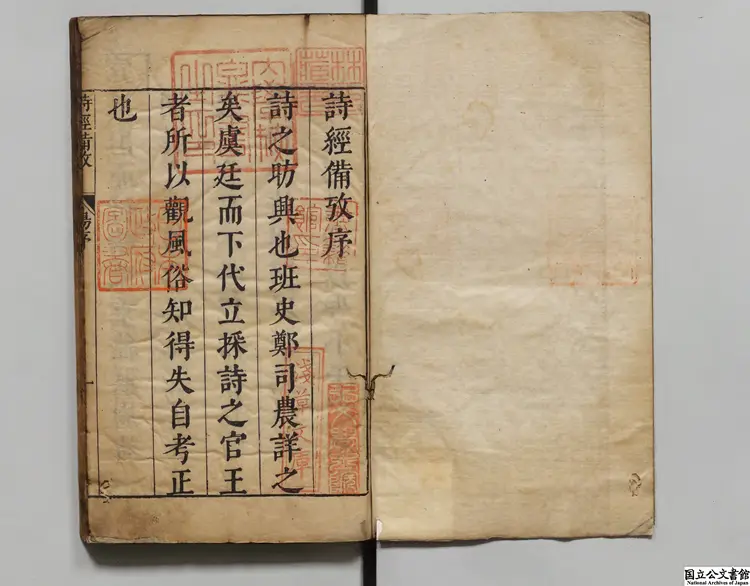 詩經備攷序
詩之昉興也班史鄭司農詳之
矣虞廷而下代立採詩之官王
者所以觀風俗知得失自考正
也
詩經備攷
序
淺草文庫
日本政府圖書
国立公文書館
National Archives of Japan